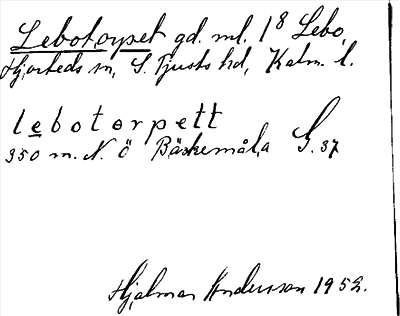 Lebotorpet gd. ml. 1⁸ Lebo,
Hjorteds sn, S. Tjusts hd, Kalm. l.
lebotɵrpett
350 m. N. ö Bäskemåla G. 37
Hjalmar Andersson 1952.